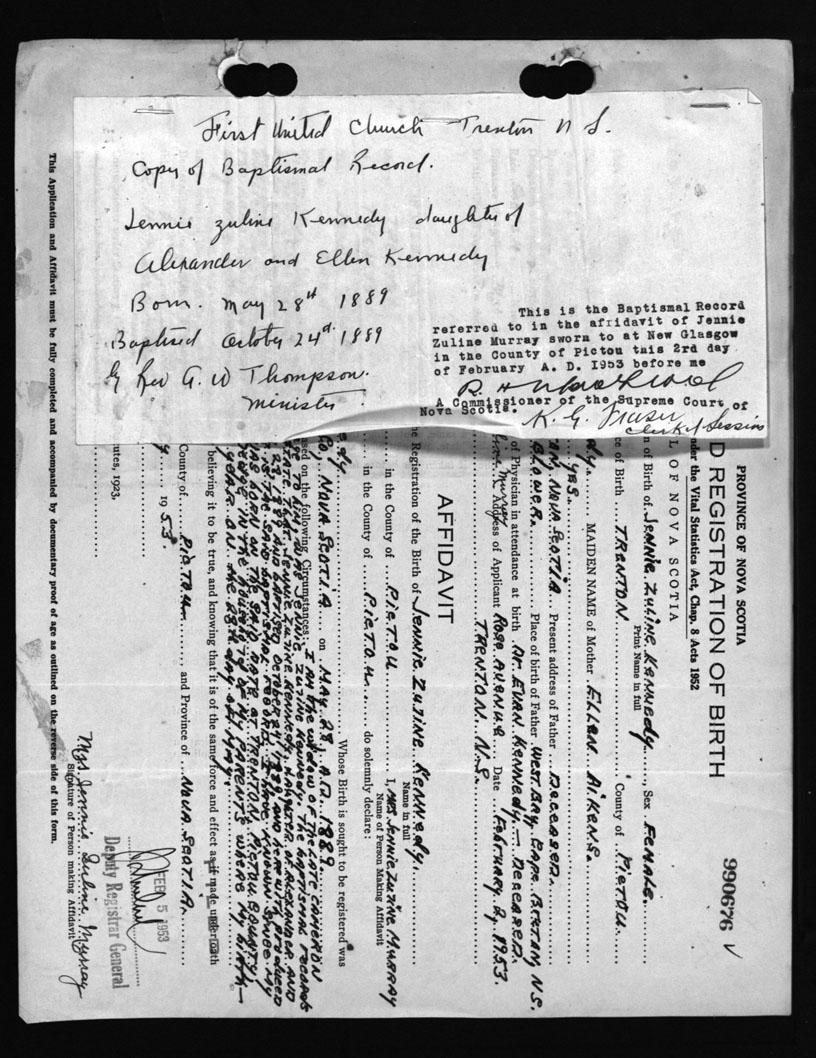 First United Church Trenton N S.
Copy of Baptismal Record.
Jennie Zuline Kennedy daughter of
Alexander and Ellen Kennedy
Born. May 28th 1889
Baptised October 24th 1889
by Rev G. W Thompson.
Minister
This is the Baptismal Record
referred to in the affidavit of Jennie
Zuline Murray sworn to at New Glasgow
in the County of Pictou this 2rd day
of February A. D. 1953 before me
A Commissioner of the Supreme Court of
Nova Scotia.
K. G. Fraser
Clerk of Session
PROVINCE OF NOVA SCOTIA
D REGISTRATION OF BIRTH
nder the Vital Statistics Act, Chap. 8 Acts 1952
L OF NOVA SCOTIA
990676
n of Birth of Jennie Zuline Kennedy, Sex Female.
Print Name in full
ce of Birth TRENTON County of Pictou
dy. MAIDEN NAME of Mother Ellen Aikens.
yes.
on, Nova Scotia Present address of Father Deceased.
Blower. Place of birth of Father West Bay, Cape Breton, N.S.
of Physician in attendance at birth Dr. Evan Kennedy. - Deceased.
line Murray Address of Applicant Rose Avenue Date February 2, 1953.
TRENTON N.S.
AFFIDAVIT
he Registration of the Birth of Jennie Zuline Kennedy.
Name in full
in the County of Pictou I, Mrs Jennie Zuline Murray
Name of Person Making Affidavit
in the County of Pictou do solemnly declare:
edy. Whose Birth is sought to be registered was
Co, Nova Scotia on May 28, A.D. 1889.
ased on the following Circumstances: I am the widow of the late Cameron
was Jennie Zuline Kennedy. The baptismal record
state that Jennie Zuline Kennedy, daughter of Alexander and
1889 and baptised October 24, 1889 and herewith produced
is the said baptismal record. I have known since my
was born on the said date at Trenton, Pictou County
in the household of my parents where my birth-
year on the 28th day of May.
believing it to be true, and knowing that it is of the same force and effect as if made under oath
County of Pictou and Province of Nova Scotia.
y 1953.
utes, 1923.
FEB 5 1953
Deputy Registrar General
Mrs Jennie Zuline Murray
Signature of Person making Affidavit
This Application and Affidavit must be fully completed and accompanied by documentary proof of age as outlined on the reverse side of this form.